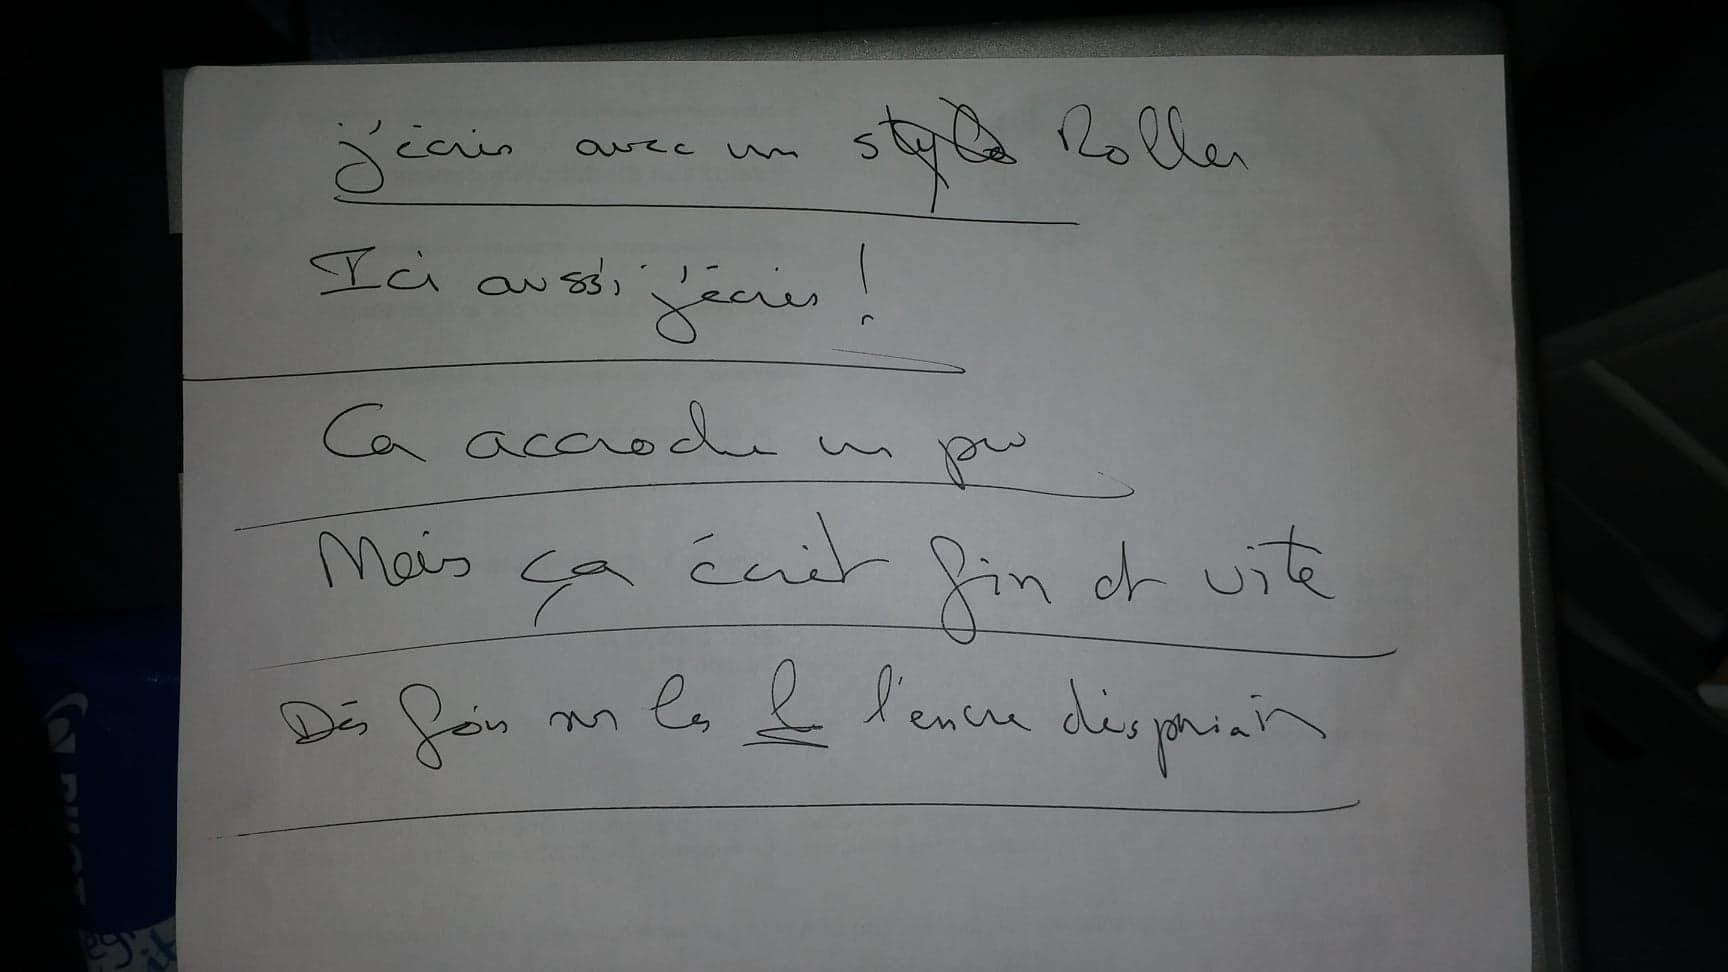 j'écris avec un stylo Roller
Ici aussi j'écris !
Ca accroche un peu
Mais ça écrit fin et vite
Dès fois sur les l l'encre disparait